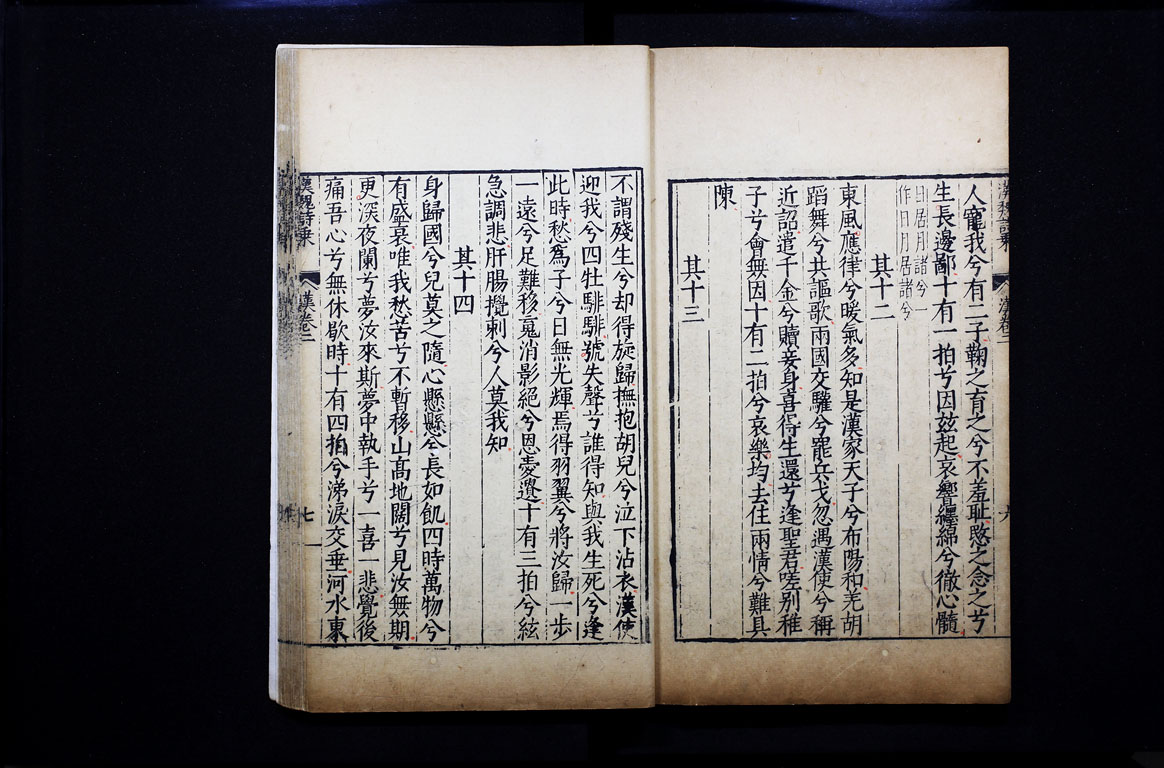 人寵我兮有二子鞠之育之兮不羞耻愍之念之兮
生長邊鄙十有一拍兮因玆起哀響纏綿兮徹心髓
日居月諸兮一
作日月居諸兮
其十二
東風應律兮暖氣多知是漢家天子兮布陽和羌胡
蹈舞兮共謳歌兩國交驩兮罷兵戈忽遇漢使兮稱
近詔遣千金兮贖妾身喜得生還兮逢聖君嗟别稚
子兮會無因十有二拍兮哀樂均去住兩情兮難具
陳
其十三
不謂殘生兮却得旋歸撫抱胡兒兮泣下沾衣漢使
迎我兮四牡騑騑號失聲兮誰得知與我生死兮逢
此時愁爲子兮日無光輝焉得羽翼兮將汝歸一步
一遠兮足難移䰟消影絕兮恩愛遺十有三拍兮絃
急調悲肝腸攪刺兮人莫我知
其十四
身歸國兮兒莫之隨心懸懸兮長如飢四時萬物兮
有盛衰唯我愁苦兮不暫移山高地闊兮見汝無期
更深夜闌兮夢汝來斯夢中執手兮一喜一悲覺後
痛吾心兮無休歇時十有四拍兮涕淚交垂河水東
漢魏詩乘
漢卷二
七